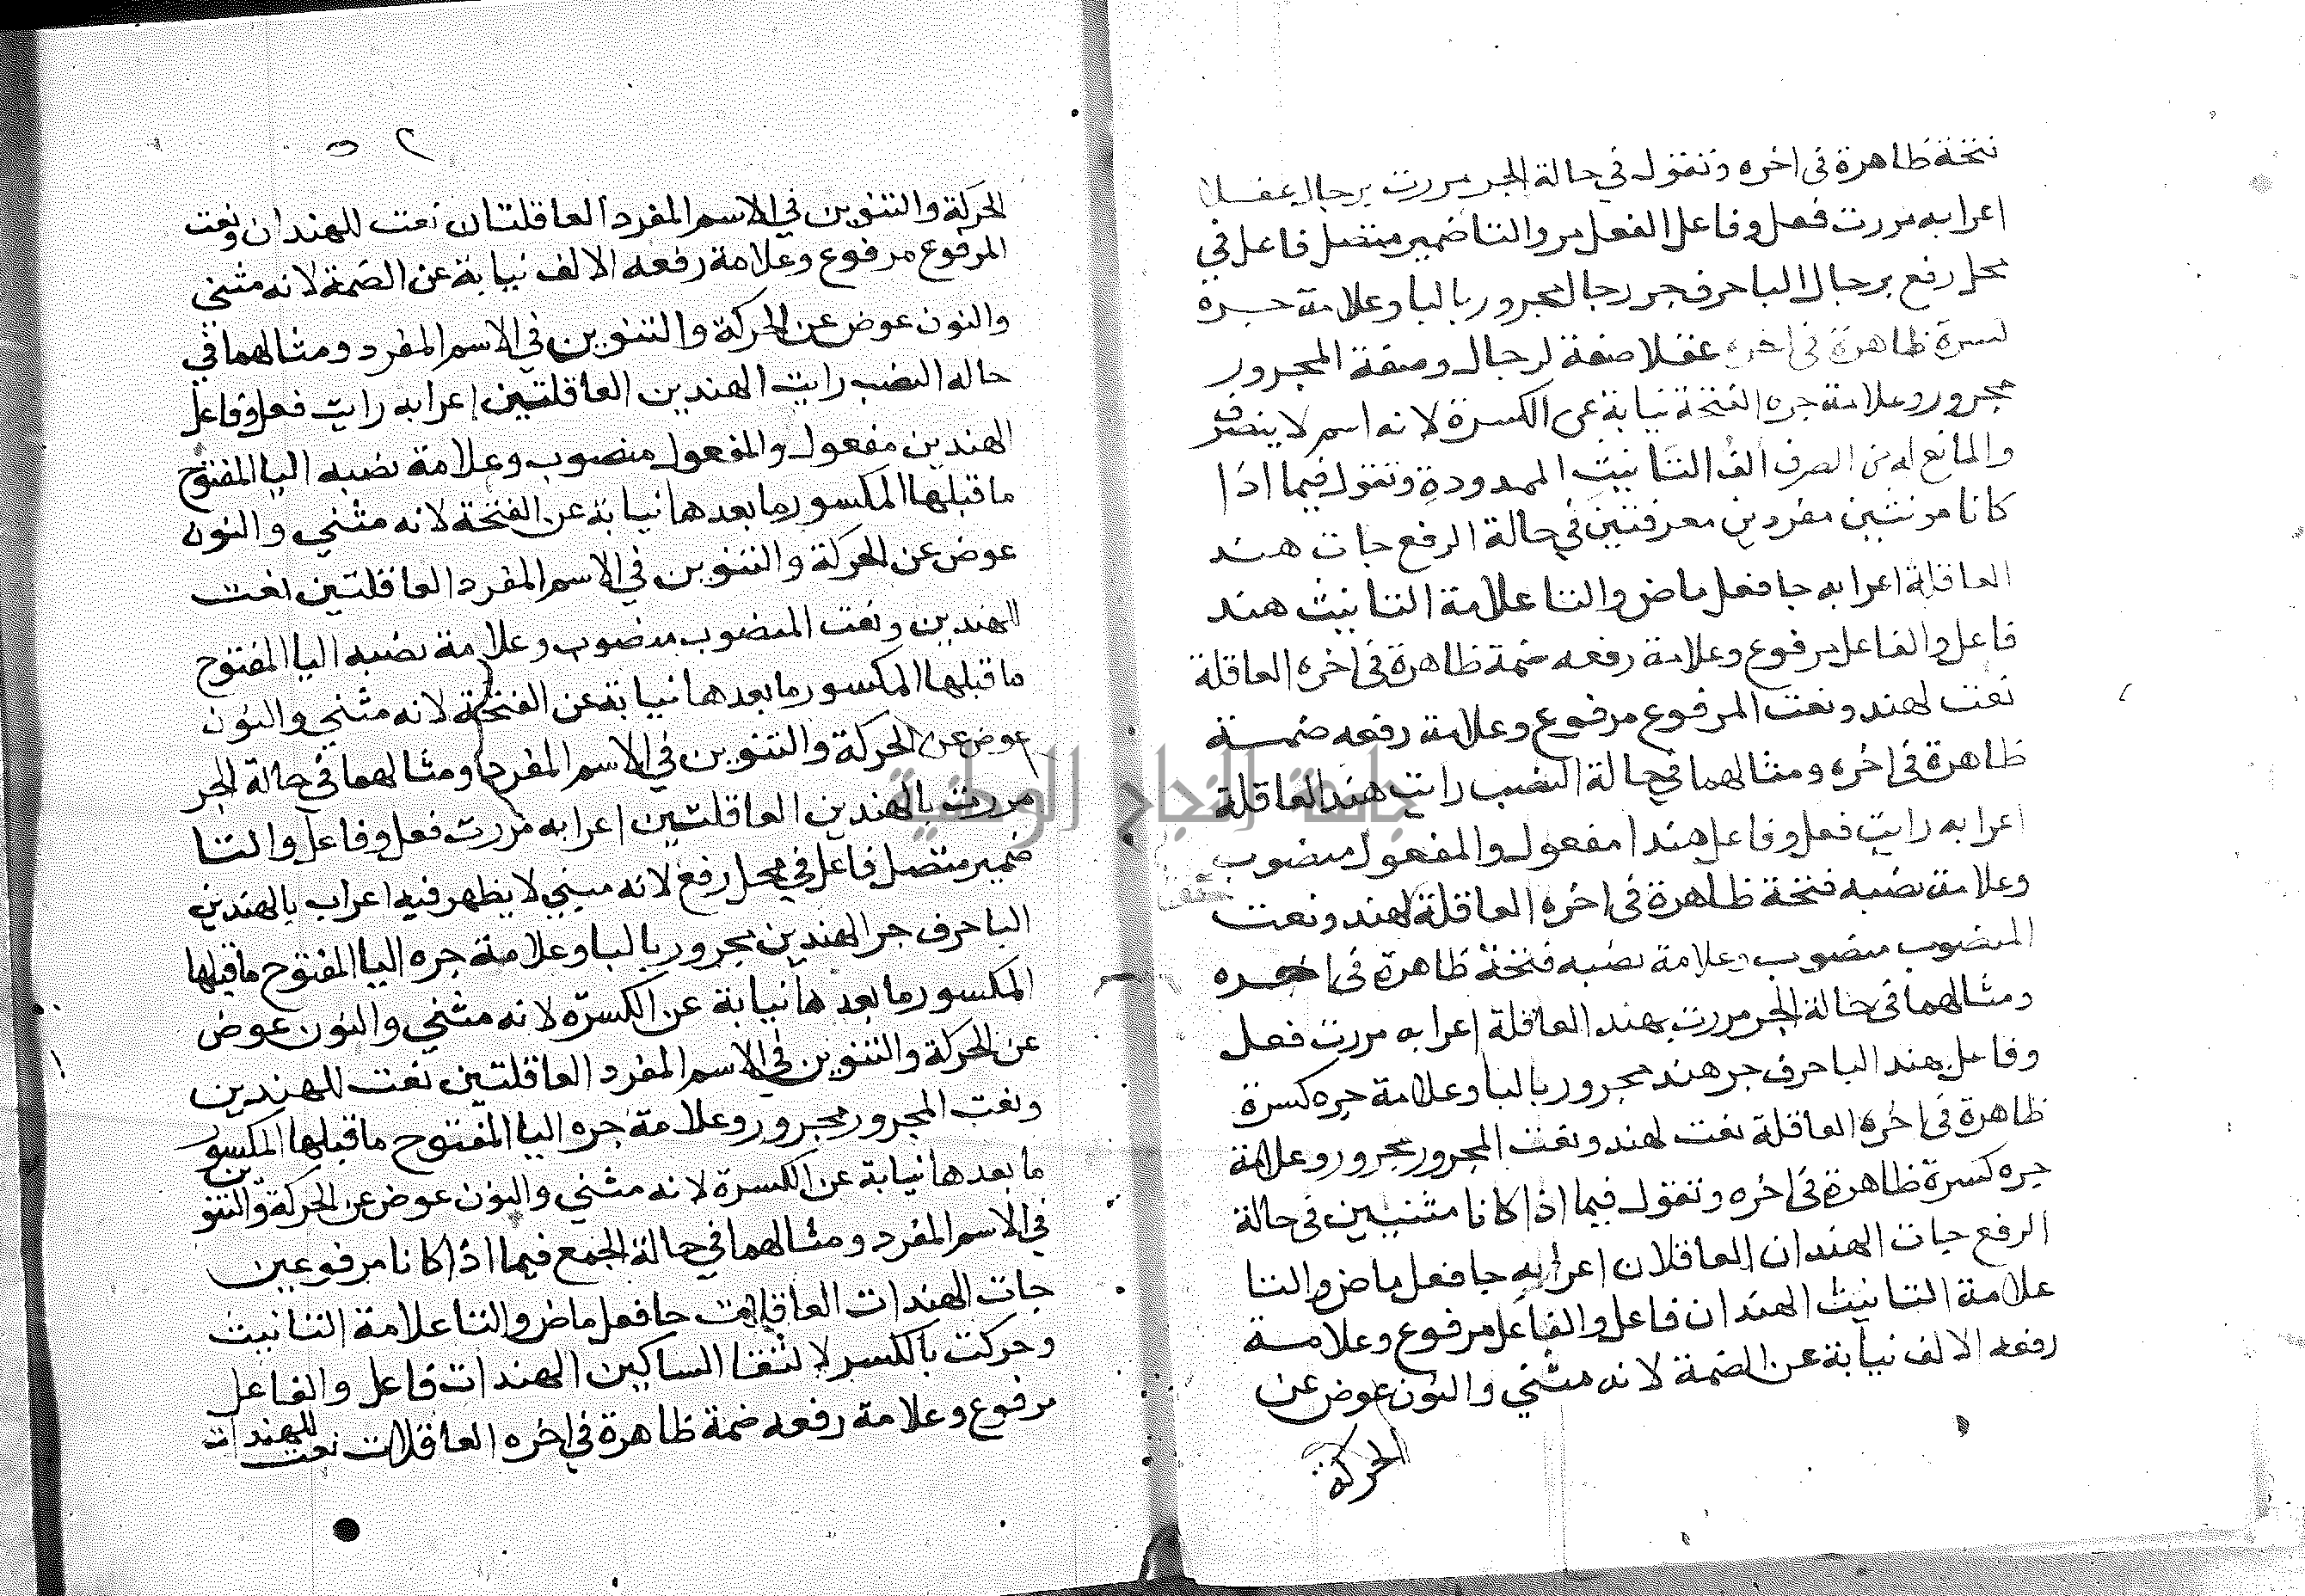 فتحة ظاهرة في اخره وتقول في حالة الجر مررت برجال عقلا
اعرابه مررت فعل وفاعل الفعل مر والتا ضمير متصل فاعل في
محل رفع برجال البا حرف جر رجال مجرور بالبا وعلامة جره
كسرة ظاهرة في اخره عقلا صفة لرجال وصفة المجرور
مجرور وعلامة جره الفتحة نيابة عن الكسرة لانه اسم لا ينصرف
والمانع له من الصرف الف التانيث الممدودة وتقول فيما اذا
كانا مونثين مفردين معرفتين في حالة الرفع جات هند
العاقلة اعرابه جا فعل ماض والتا علامة التانيث هند
فاعل والفاعل مرفوع وعلامة رفعه ضمة ظاهرة في اخره العاقلة
نعت لهند ونعت المرفوع مرفوع وعلامة رفعه ضمة
ظاهرة في اخره ومثالهما في حالة النصب رايت هند العاقلة
اعرابه رايت فعل وفاعل هندا مفعول والمفعول منصوب
وعلامة نصبه فتحة ظاهرة في اخره العاقلة لهند ونعت
المنصوب منصوب وعلامة نصبه فتحة ظاهرة في اخره
ومثالهما في حالة الجر مررت بهند العاقلة اعرابه مررت فعل
وفاعل بهند البا حرف جر هند مجرور بالبا وعلامة جره كسرة
ظاهرة في اخره العاقلة نعت لهند ونعت المجرور مجرور وعلامة
جره كسرة ظاهرة في اخره وتقول فيما اذا كانا مثنيين في حالة
الرفع جات الهندان العاقلان اعرابه جا فعل ماض والتا
علامة التانيث الهندان فاعل والفاعل مرفوع وعلامة
رفعه الالف نيابة عن الضمة لانه مثني والنون عوض عن
الحركة
الحركة والتنوين في الاسم المفرد العاقلتان نعت للهندان ونعت
المرفوع مرفوع وعلامة رفعه الالف نيابة عن الضمة لانه مثني
والنون عوض عن الحركة والتنوين في الاسم المفرد ومثالهما في
حاله النصب رايت الهندين العاقلتين اعرابه رايت فعل وفاعل
الهندين مفعول والمفعول منصوب وعلامة نصبه اليا المفتوح
ما قبلها المكسور ما بعدها نيابة عن الفتحة لانه مثني والنون
عوض عن الحركة والتنوين في الاسم المفرد العاقلتين نعت
للهندين ونعت المنصوب منصوب وعلامة نصبه اليا المفتوح
ما قبلها المكسور ما بعدها نيابة عن الفتحة لانه مثني والنون
عوض عن الحركة والتنوين في الاسم المفرد ومثالهما في حالة الجر
مررت بالهندين العاقلتين اعرابه مررت فعل وفاعل والتا
ضمير متصل فاعل في محل رفع لانه مبني لا يظهر فيه اعراب بالهندين
البا حرف جر الهندين مجرور بالبا وعلامة جره اليا المفتوح ما قبلها
المكسور ما بعدها نيابة عن الكسره لانه مثني والنون عوض
عن الحركة والتنوين في الاسم المفرد العاقلتين نعت للهندين
ونعت المجرور مجرور وعلامة جره اليا المفتوح ما قبلها المكسور
ما بعدها نيابة عن الكسرة لانه مثني والنون عوض عن الحركة والتنوين
في الاسم المفرد ومثالهما في حالة الجمع فيما اذا كانا مرفوعين
جات الهندات العاقلات جا فعل ماض والتا علامة التانيث
وحركت بالكسر لالتقا الساكين الهندات فاعل والفاعل
مرفوع وعلامة رفعه ضمة ظاهرة في اخره العاقلات نعت للهندات
جامعة النجاح الوطنية